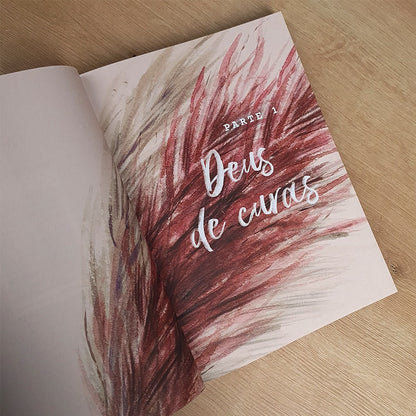 PARTE 1
Deus
de curas